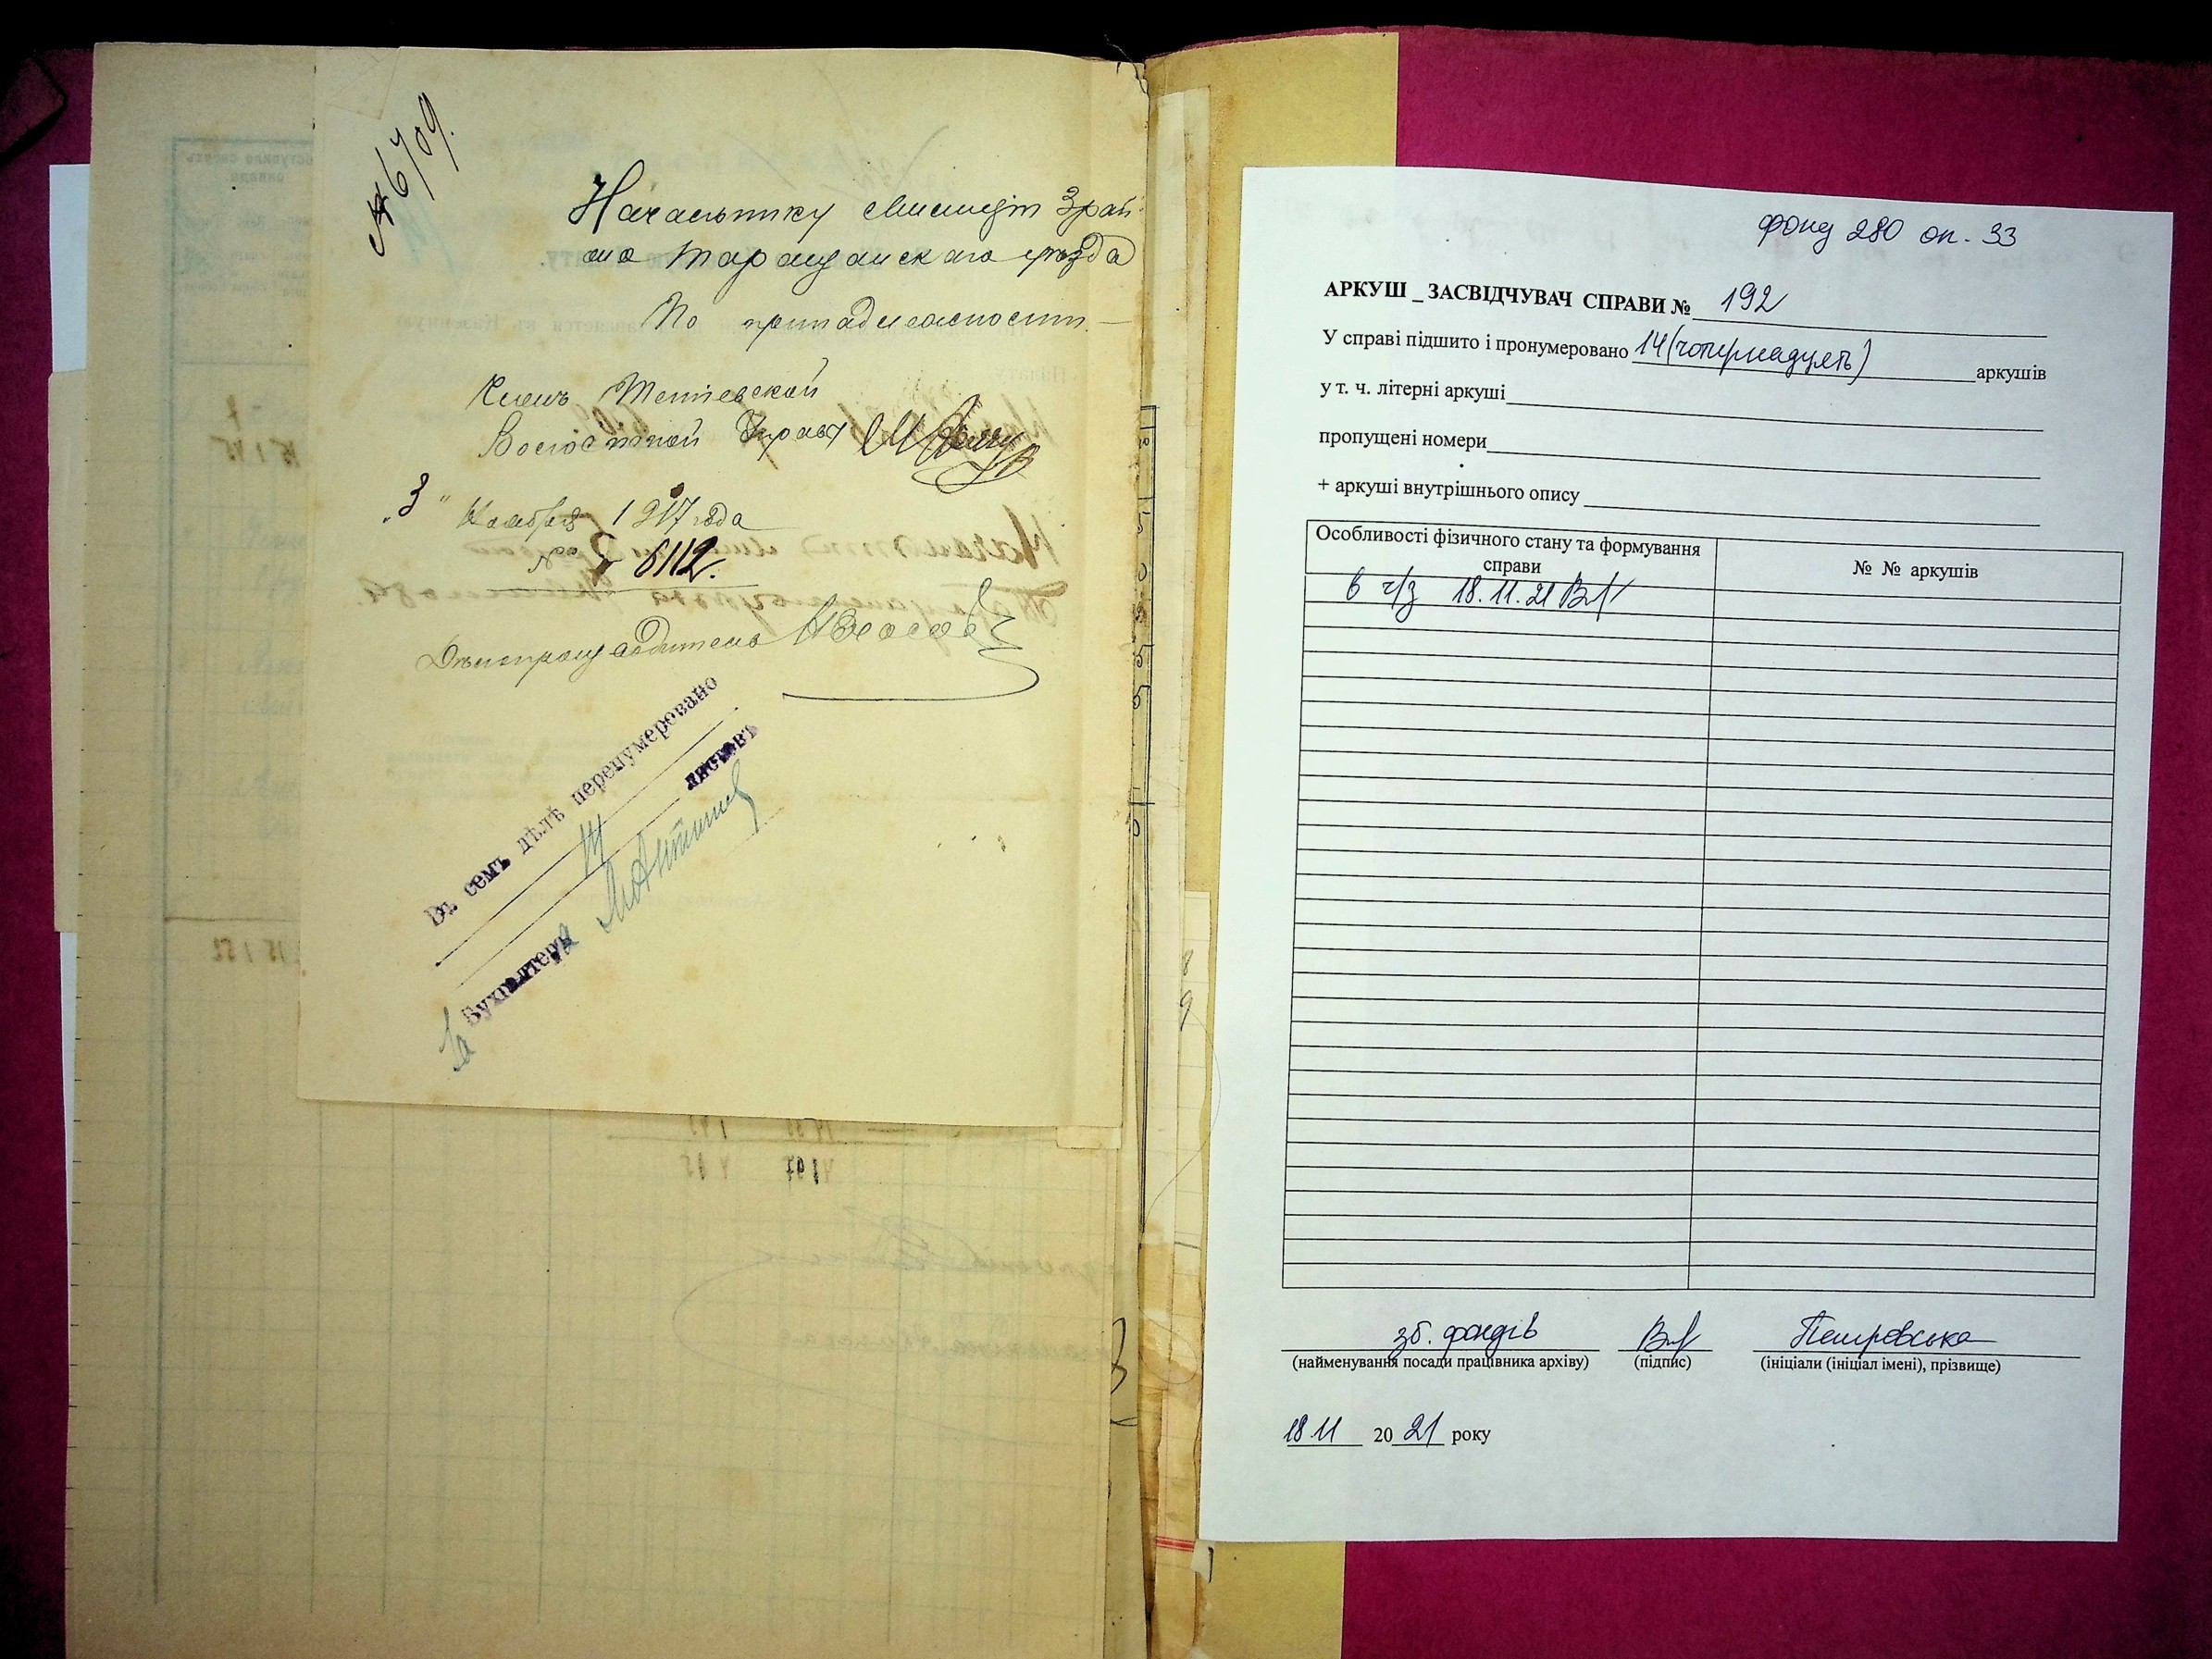 № 6709.
Начальнику Милиціи 3 рай-
она Таращанскаго уѣзда
По принадлежности. —
Членъ Тетіевской
Волостной Управы
„3" Ноября 1917 года
№ 6112.
Дѣлопроизводитель
Въ семъ дѣлѣ перенумеровано
14
листовъ
За Бухгалтера
фонд 280 оп. 33
АРКУШ _ ЗАСВІДЧУВАЧ СПРАВИ № 192
У справі підшито і пронумеровано 14 (чотирнадцять) аркушів
у т. ч. літерні аркуші
пропущені номери
+ аркуші внутрішнього опису
Особливості фізичного стану та формування
справи
№ № аркушів
в ч/з 18.11.21
зб. фондів Петровська
(найменування посади працівника архіву) (підпис) (ініціали (ініціал імені), прізвище)
18.11 2021 року